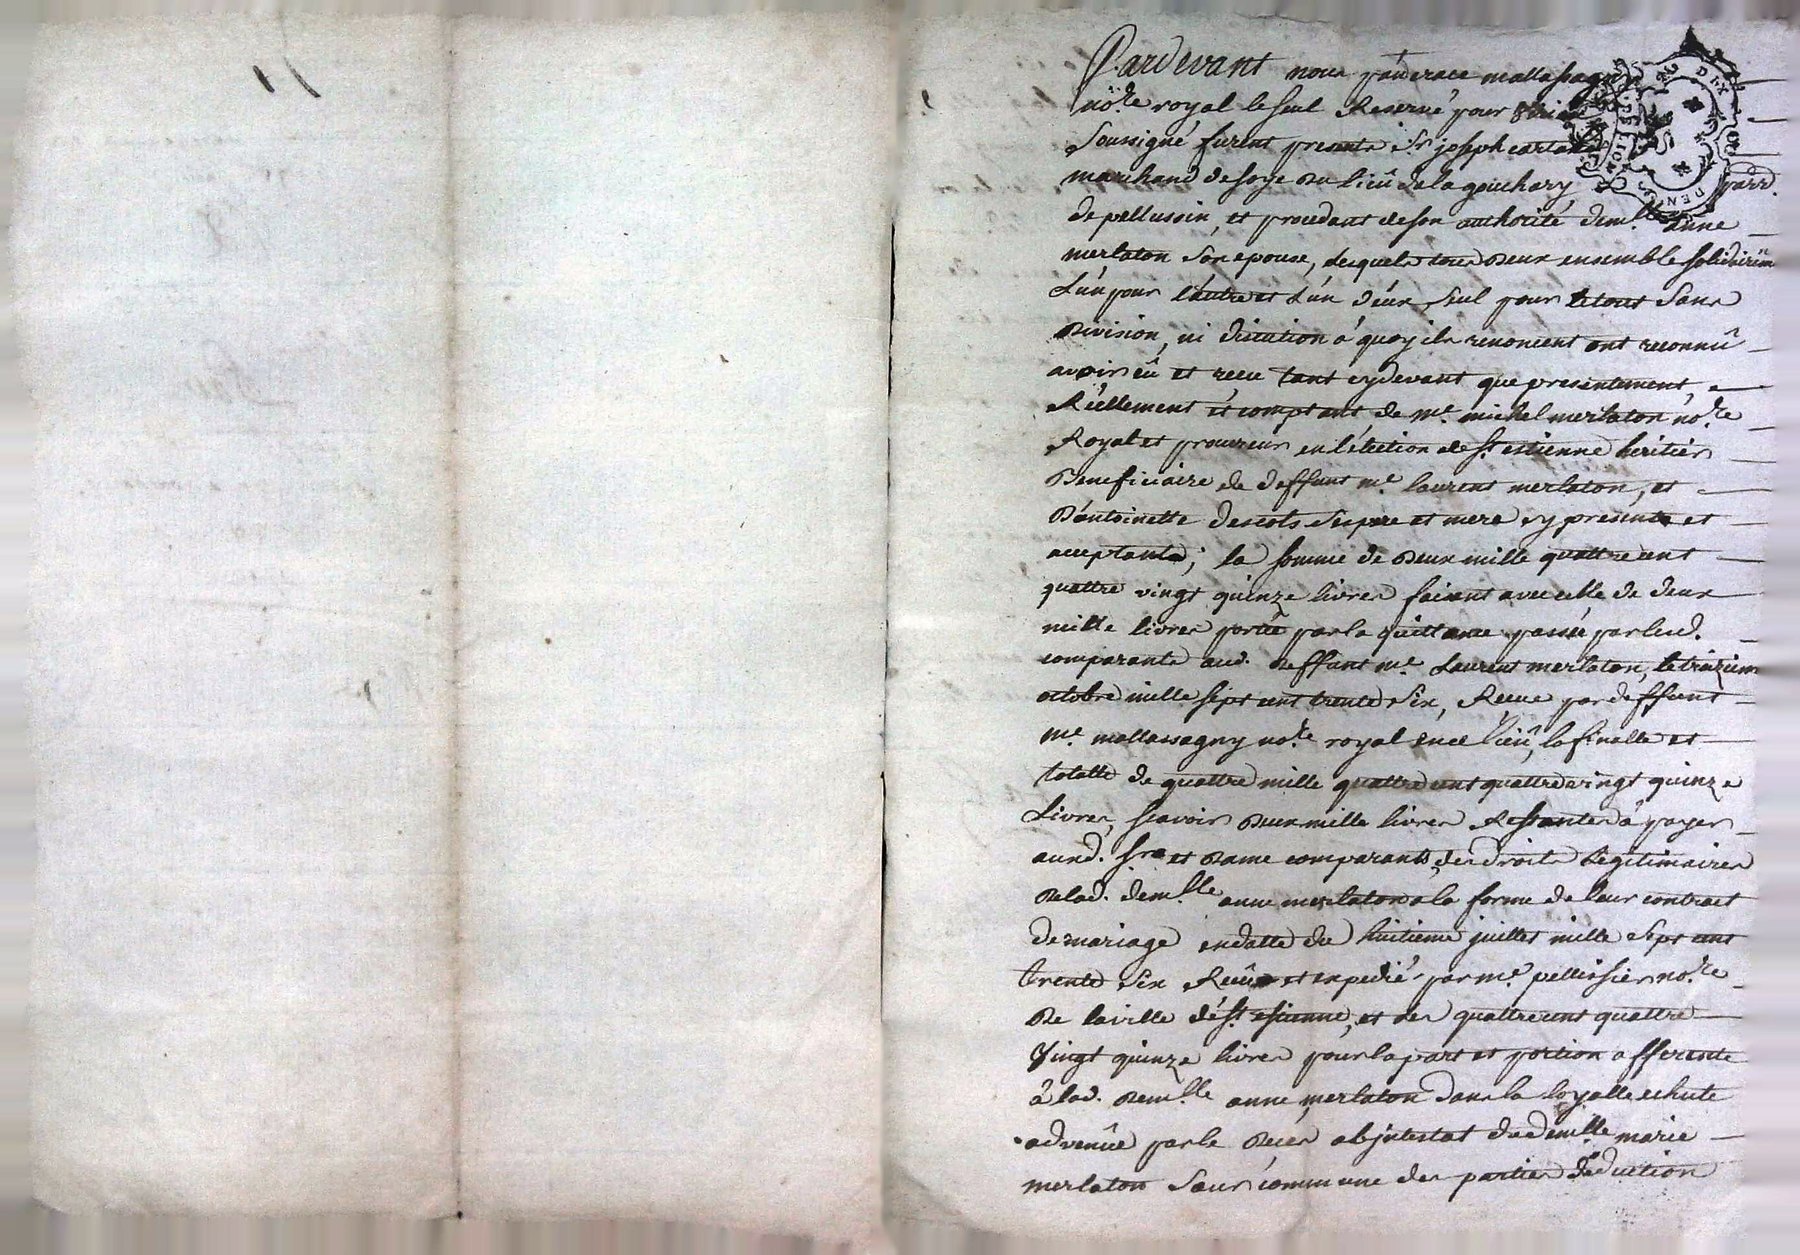 Pardevant nous pancrace mallassagny
no.re royal le seul Reservé pour
Soussigné furent presents Sr. joseph
marchand de soye Du lieû de la gouchary parr.
de pellussin, et procedant de son authorité dem.lle anne
merlaton Son epouse, lesquels tous Deux ensemble solidairem
L'un pour l'autre et L'un d'eux seul pour le tout Sans
Division, ni discution a quoy ils renoncent ont reconnû
avoir eû et receu tant cydevant que presentement,
Réellement et comptant de Me. michel merlaton no.re
Royal et procureur en l'election de St. estienne heritier
Beneficiaire de deffunt me. laurent merlaton, et
D'antoinette descots Ses pere et mere cy presents et
acceptants; la somme de Deux mille quattre cent
quattre vingt quinze livres faisant avec celle de deux
mille livres portée par la quittance passée par lesd.
comparants aud. Deffunt me. Laurent merlaton, le traizieme
octobre mille sept cent trente Six, Receue par deffunt
me. mallassagny no.re royal en ce lieû, la finalle et
totalle de quattre mille quattre cent quattre vingt quinze
Livres, scavoir Deux mille livres Restantes à payer
auxd. Srs et Dame comparants, des Droits Legitimaires
De lad. dem.lle anne merlaton a la forme de leur contract
de mariage en datte du huitieme juillet mille Sept cent
trente Six Receû et expedié par me. pellissier no.re
De la ville de St. estienne, et les quattre cent quattre
Vingt quinze livres pour la part et portion afferente
â lad. Dem.lle anne merlaton dans la loyalle echute
advenûe par le Decés abjntestat de dem.lle marie
merlaton Sœur commune des parties déduction